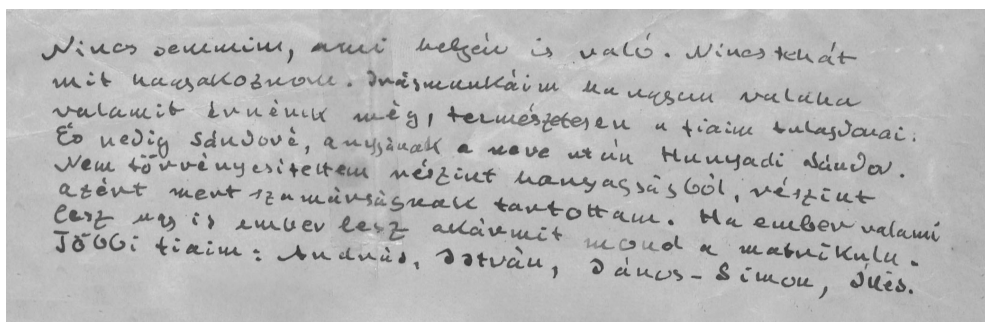 Nincs semmim, ami helyén is való. Nincs tehát
mit hagyakoznom. Irásmunkáim ha ugyan valaha
valamit érnének még, természetesen a fiaim tulajdonai.
És pedig Sándoré, anyjának a neve után Hunyadi Sándor.
Nem törvényesitettem részint hanyagságból, részint
azért mert szamárságnak tartottam. Ha ember valami
lesz ugy is ember lesz akármit mond a matrikula.
Többi fiaim: András, István, János-Simon, Illés.